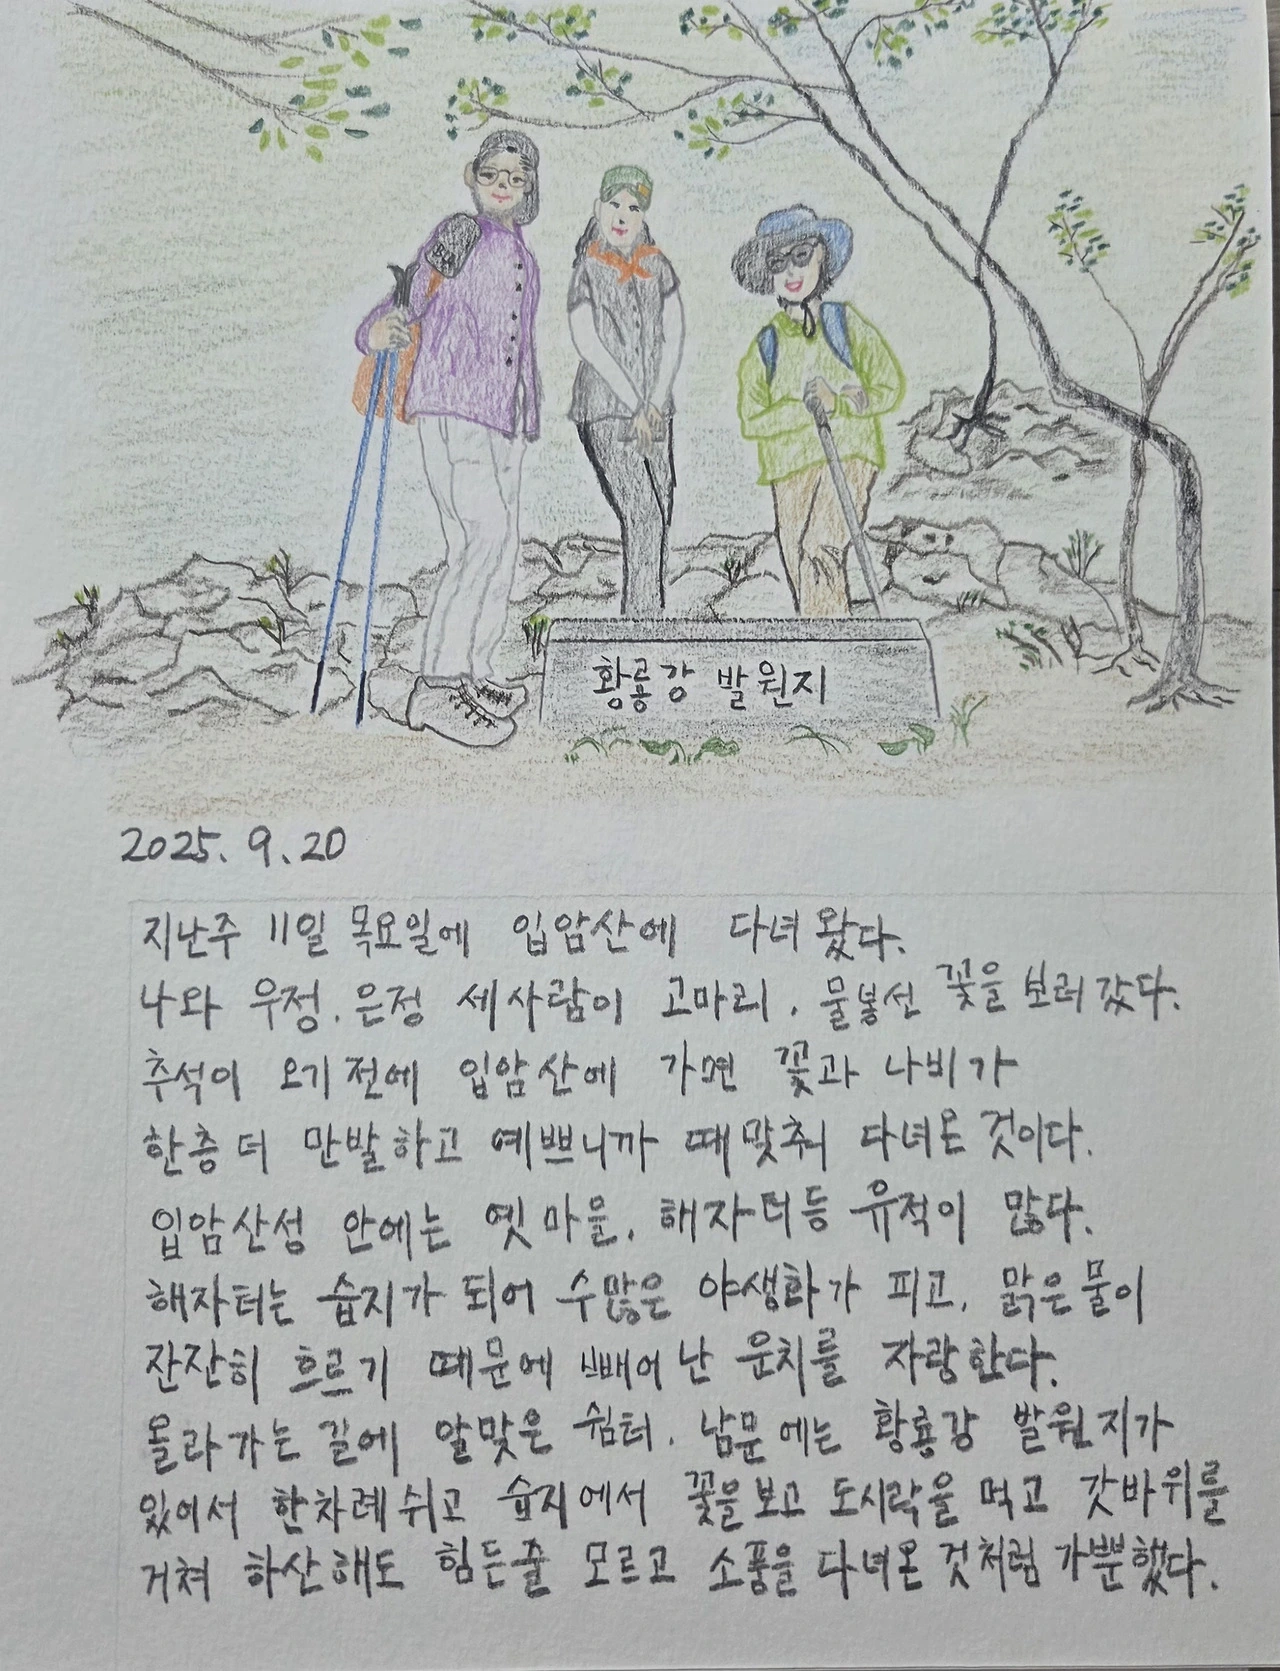 황룡강 발원지
2025. 9. 20
지난주 11일 목요일에 입암산에 다녀왔다.
나와 우정. 은정 세사람이 고마리, 물봉선 꽃을 보러갔다.
추석이 오기 전에 입암산에 가면 꽃과 나비가
한층 더 만발하고 예쁘니까 때맞춰 다녀온 것이다.
입암산성 안에는 옛마을, 해자터등 유적이 많다.
해자터는 습지가 되어 수많은 야생화가 피고, 맑은물이
잔잔히 흐르기 때문에 빼어난 운치를 자랑한다.
올라가는 길에 알맞은 쉼터. 남문에는 황룡강 발원지가
있어서 한차례 쉬고 습지에서 꽃을보고 도시락을 먹고 갓바위를
거쳐 하산해도 힘든줄 모르고 소풍을 다녀온 것처럼 가뿐했다.